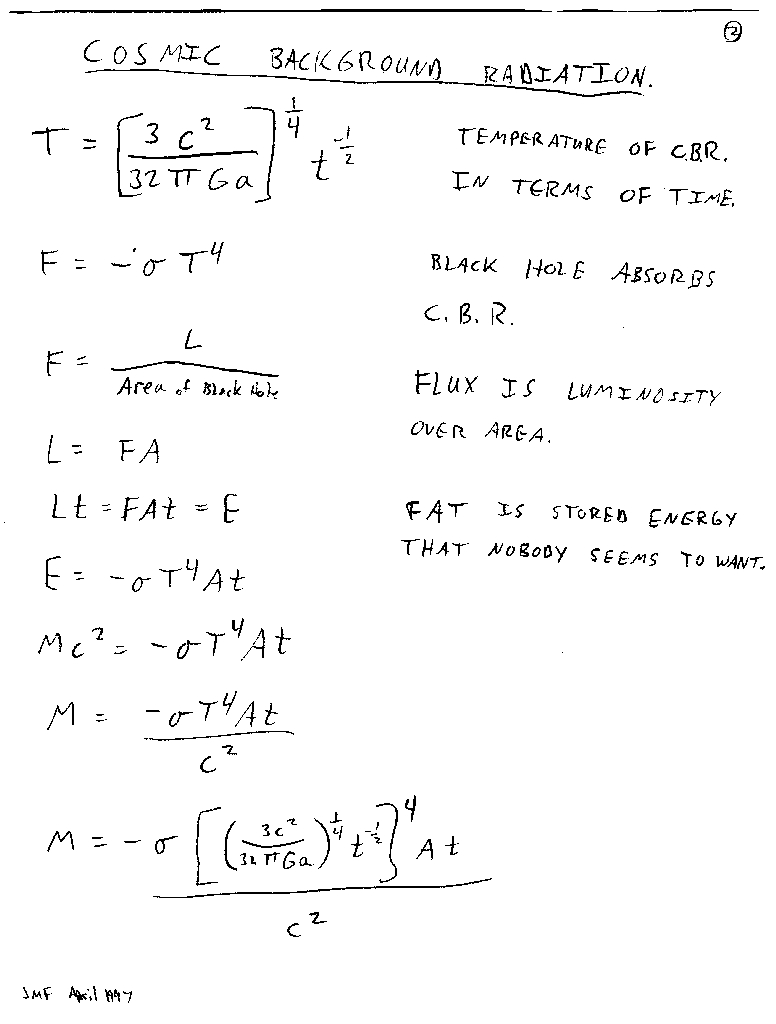 ②
COSMIC BACKGROUND RADIATION.
T = [3c²/32πGa]^(1/4) t^(-1/2)
TEMPERATURE OF C.B.R.
IN TERMS OF TIME.
F = -σT⁴
BLACK HOLE ABSORBS
C.B.R.
F = L/Area of Black Hole
FLUX IS LUMINOSITY
OVER AREA.
L = FA
Lt = FAt = E
FAT IS STORED ENERGY
THAT NOBODY SEEMS TO WANT.
E = -σT⁴At
Mc² = -σT⁴At
M = -σT⁴At/c²
M = -σ[(3c²/32πGa)^(1/4) t^(-1/2)]⁴ At/c²
JMF April 1997